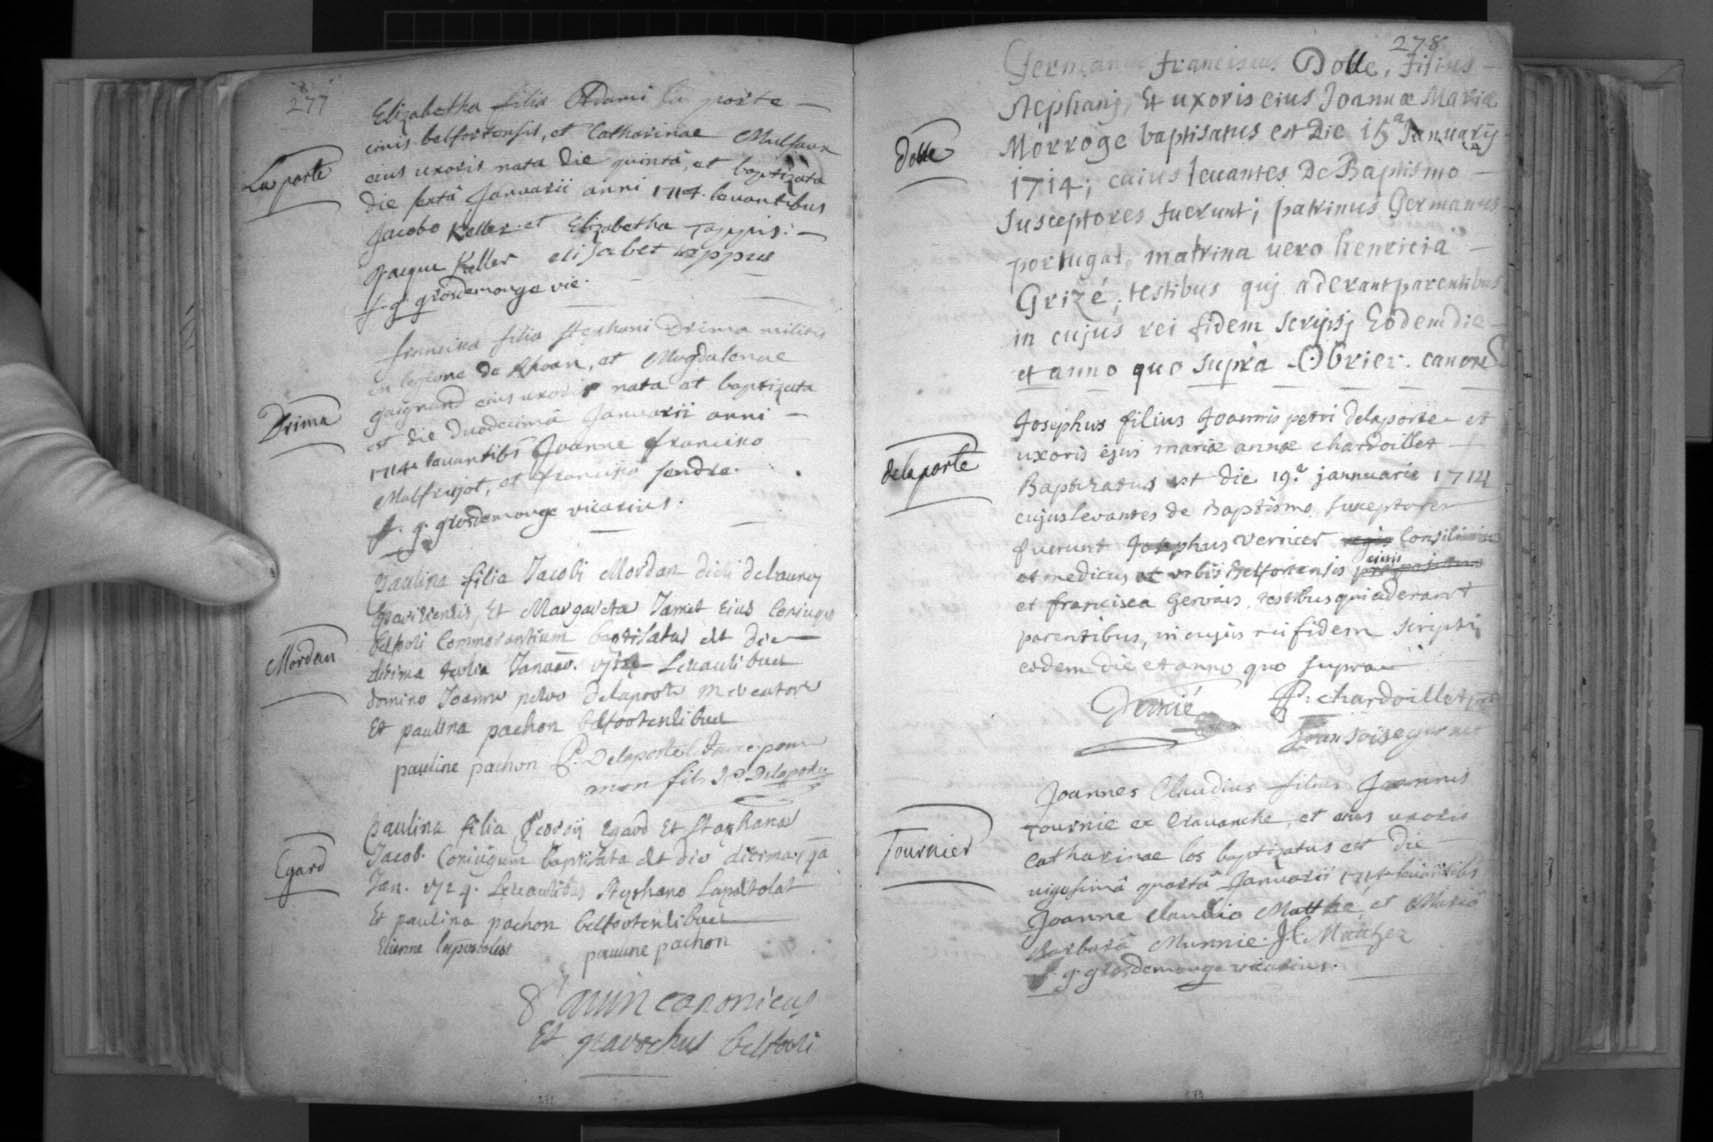 277
La porte
Elizabetha filia Adami la porte
civis belfortensis, et Catharinae
eius uxoris nata die quintâ, et baptizata
die sextâ Januarii anni 1714. levantibus
Jacobo Keller et Elizabetha Tappis.
Jacque Keller elisabet tappus
f. g. grosdemange vic.
Drima
francisca filia stephani Drima militis
in legione de Rhoan, et Magdalenae
gaignand eius uxoris nata et baptizata
est die duodecimâ Januarii anni
1714. levantibs Joanne francisco
Malfregot, et franciscâ fendre.
f. g. grosdemange vicarius.
Mordan
paulina filia Jacobi Mordan dicti delaunoy
Et Margareta Jamet Eius Coniugis
belforti Commorantium baptisatus est die
decima tertia Januar. Levantibus
domino Joanne petro delaporte mercatore
Et paulina pachon belfortensibus
pauline pachon P. Delaporte
mon fils J. P. Delaporte
Egard
paulina filia Georgii Egard Et Stephana
Jacob. Coniugum baptisata est die decima 4ta
Jan. 1714. Levantibus Stephano Lapostolat
Et paulina pachon belfortensibus
Etienne lapostolat pauline pachon
canonicus
Et parochus belforti
278
dolle
Germanus franciscus Dolle, filius
Stephanj, Et uxoris eius Joannæ Mariæ
Morroge baptisatus est Die 15a Januarij
1714; cuius levantes De Baptismo
Susceptores fuerunt; patrinus Germanus
portugat, matrina vero henricia
Grizé; testibus quj aderant parentibus
in cujus rei fidem scripsj Eodem die
et anno quo supra Obrier. canon.
delaporte
Josephus filius Joannis petri Delaporte et
uxoris ejus mariæ annæ chardoillet
Baptizatus est die 19a jannuarie 1714
cujus levantes de Baptismo susceptores
fuerunt Josephus vernier regis Consiliarius
et medicus et urbis Belfortensis civis
et francisca Gervais, testibus qui aderant
parentibus, in cujus rei fidem scripsi
eodem die et anno quo supra
Vernié P. chardoillet
Tournier
Joannes Claudius filius Joannis
Tournie ex Cravanche, et eius uxoris
catharinae los baptizatus est die
vigesimâ quartâ Januarii 1714 levantibs
Joanne claudio Matthé, et Mariâ
Barbarâ Munnie. J. C. Mathez
f. g. grosdemange vicarius.